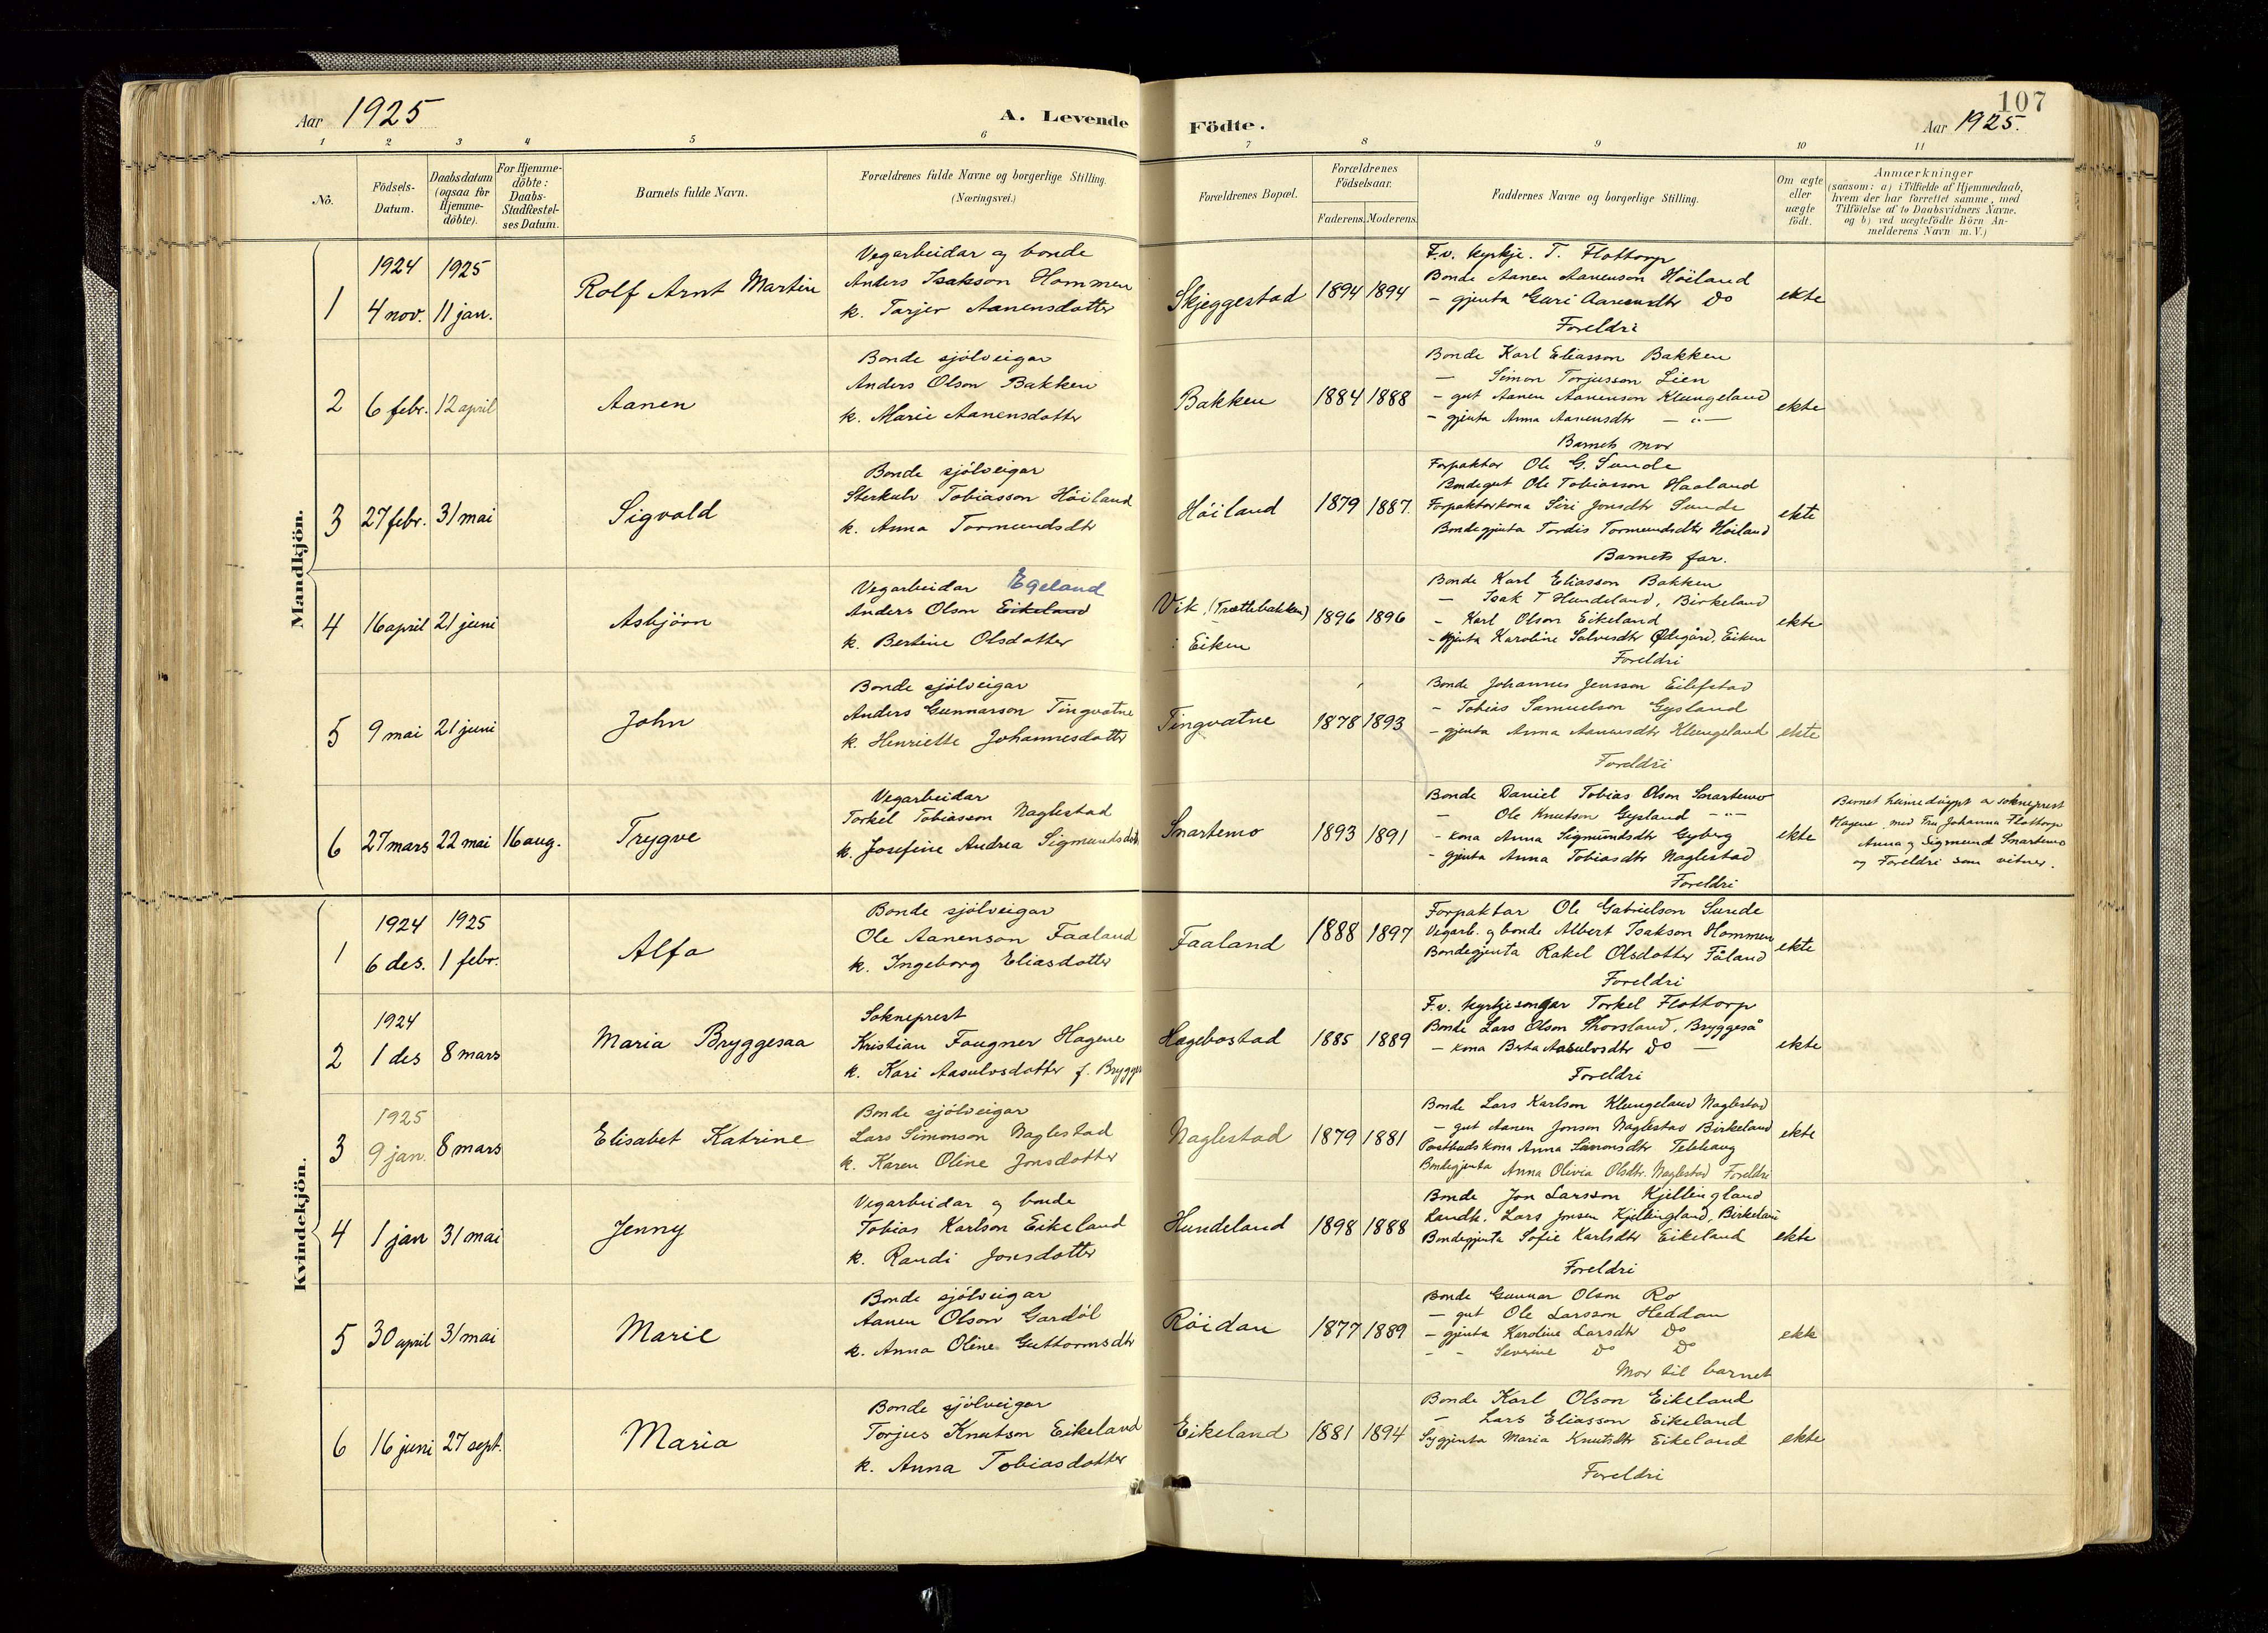 107
Aar 1925
A. Levende Födte.
Aar 1925.
1 2 3 4 5 6 7 8 9 10 11
No.
Födsels-Datum.
Daabsdatum (ogsaa for Hjemme-döbte).
For Hjemme-döbte: Daabs-Stadfæstel-ses Datum.
Barnets fulde Navn.
Forældrenes fulde Navne og borgerlige Stilling.
(Næringsvei.)
Forældrenes Bopæl.
Forældrenes Födselsaar.
Faderens. Moderens.
Faddernes Navne og borgerlige Stilling.
Om ægte eller uægte födt.
Anmærkninger
(saasom: a) i Tilfælde af Hjemmedaab,
hvem der har forrettet samme, med
Tilföielse af to Daabsvidners Navne.
og b) ved uægtefödte Börn An-
melderens Navn m. V.)
Mandkjön.
1
1924
4 nov.
1925
11 jan.
Rolf Arnt Martin
Vegarbeidar og bonde
Anders Isakson Hommen
k. Tarjer Aanensdotter
Skjeggestad
1894 1894
F.v. kyrkje. T. Flottorp
Bonde Aanen Aanenson Höiland
- gjenta Guri Aanensdtr Do
Foreldri
ekte
2
6 febr.
12 april
Aanen
Bonde sjölveigar
Anders Olson Bakken
k. Marie Aanensdotter
Bakken
1884 1888
Bonde Karl Eliasson Bakken
— Simon Torjusson Lien
- gut Aanen Aanenson Klungeland
- gjenta Anna Aanensdtr — " —
Barnets mor
ekte
3
27 febr.
31 mai
Sigvald
Bonde sjölveigar
Sterkulv Tobiasson Höiland
k. Anna Tormundsdtr
Höiland
1879 1887.
Forpaktar Ole G. Sunde
Bondegut Ole Tobiasson Haaland
Forpaktarkona Siri Jonsdtr Sunde
Bondegjenta Tordis Tormundsdtr Höiland
Barnets far.
ekte
4
16 april
21 juni
Asbjörn
Vegarbeidar Egeland
Anders Olson Eikeland
k. Bertine Olsdotter
Vik (Trættebakken)
i Eiken
1896 1896
Bonde Karl Eliasson Bakken
— Isak T Hundeland, Birkeland
- Karl Olson Eikeland
- gjenta Karoline Salvesdtr Ødegård, Eiken
Foreldri
ekte
5
9 mai
21 juni
John
Bonde sjölveigar
Anders Gunnarson Tingvatne
k. Henriette Johannesdotter
Tingvatne
1878 1893
Bonde Johannes Jensson Eilefstad
- Tobias Samuelson Gysland
- gjenta Anna Aanensdtr Klungeland
Foreldri
ekte
6
27 mars
22 mai
16 aug.
Trygve
Vegarbeidar
Torkel Tobiasson Naglestad
k. Josefine Andrea Sigmundsdotr
Snartemo
1893 1891
Bonde Daniel Tobias Olson Snartemo
— Ole Knutson Gysland - " -
- kona Anna Sigmundsdtr Gyberg
- gjenta Anna Tobiasdtr Naglestad
Foreldri
ekte
Barnet heimedöypt av sokneprest
Hagene med Fru Johanna Flottorp
Anna og Sigmund Snartemo
og Foreldri som vitner.
Kvindekjön.
1
1924
6 des.
1925
1 febr.
Alfa
Bonde sjölveigar
Ole Aanenson Faaland
k. Ingeborg Eliasdotter
Faaland
1888 1897
Forpaktar Ole Gabrielson Sunde
Vegarb. og bonde Albert Isakson Hommen
Bondegjenta Rakel Olsdotter Fåland
Foreldri
ekte
2
1924
1 des
8 mars
Maria Bryggesaa
Sokneprest
Kristian Fougner Hagene
k. Kari Aasulvsdotter f. Brygge
Hægebostad
1885 1889
F.v. kyrkjesongar Torkel Flottorp
Bonde Lars Olson Thorsland, Bryggeså
- kona Berta Aasulvsdtr Do —
Foreldri
ekte
3
1925
9 jan.
8 mars
Elisabet Katrine
Bonde sjölveigar
Lars Simonson Naglestad
k. Karen Oline Jonsdotter
Naglestad
1879 1881
Bonde Lars Karlson Klungeland Naglestad
- gut Aanen Jonson Naglestad Birkeland
Postbudskona Anna Simonsdtr Telehaug
Bondegjenta Anna Olivia Olsdtr. Naglestad Foreldri
ekte
4
1 jan
31 mai
Jenny
Vegarbeidar og bonde
Tobias Karlson Eikeland
k. Randi Jonsdotter
Hundeland
1898 1888
Bonde Jon Larsson Kjellingland
Landh. Lars Jonsen Kjellingland, Birkeland
Bondegjenta Sofie Karlsdtr Eikeland
Foreldri
ekte
5
30 april
31 mai
Marie
Bonde sjölveigar
Aanen Olson Gardöl
k. Anna Oline Guttormsdtr
Röidan
1877 1889
Bonde Gunnar Olson Ro
— gut Ole Larsson Heddan
- gjenta Karoline Larsdtr Do
- - Severine Do Do
Mor til barnet
ekte
6
16 juni
27 sept.
Maria
Bonde sjölveigar
Torjus Knutson Eikeland
k. Anna Tobiasdotter
Eikeland
1881 1894
Bonde Karl Olson Eikeland
- Lars Eliasson Eikeland
Sygjenta Maria Knutsdtr Eikeland
Foreldri
ekte